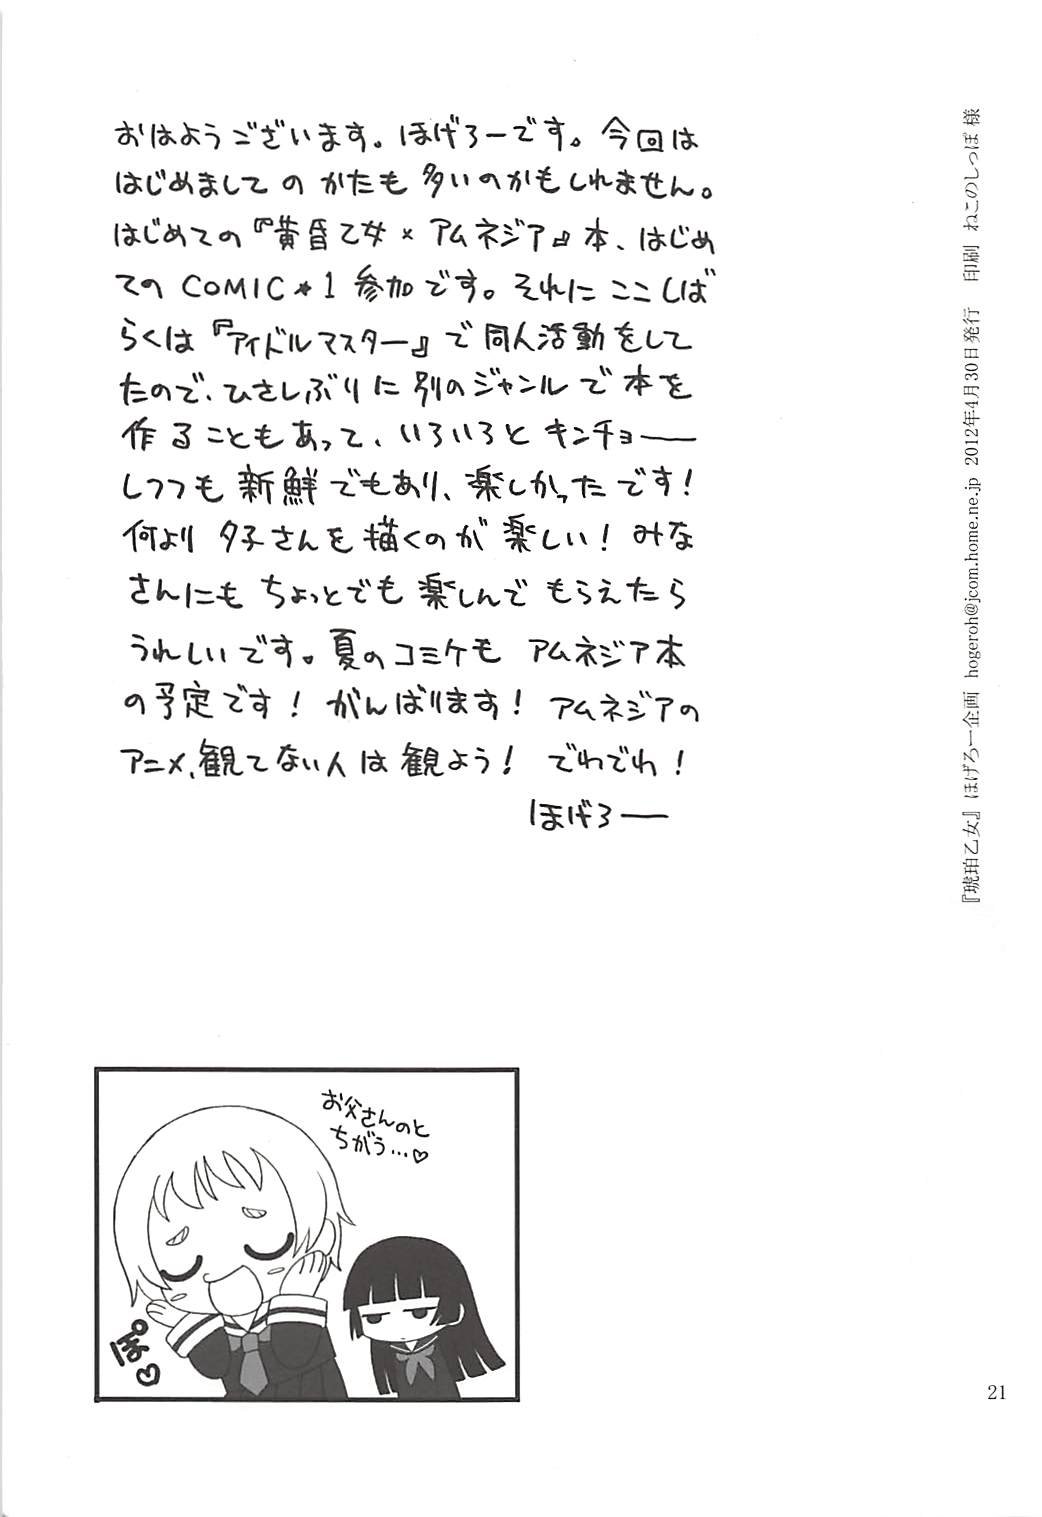 おはようございます。ほげろーです。今回は
はじめましての かたも 多いのかもしれません。
はじめての『黄昏乙女×アムネジア』本、はじめ
ての COMIC★1 参加です。それに ここしば
らくは『アイドルマスター』で 同人活動をして
たので、ひさしぶりに 別のジャンルで 本を
作ることもあって、いろいろと キンチョー
しつつも 新鮮でもあり、楽しかったです!
何より 夕子さんを描くのが 楽しい! みな
さんにも ちょっとでも 楽しんで もらえたら
うれしいです。夏のコミケも アムネジア本
の予定です! がんばります! アムネジアの
アニメ、観てない人は観よう! でわでわ!
ほげろー
『琥珀乙女』 ほげろー企画 hogeroh@jcom.home.ne.jp 2012年4月30日発行 印刷 ねこのしっぽ 様
お父さんのと
ちがう…♡
ぽ♡
21